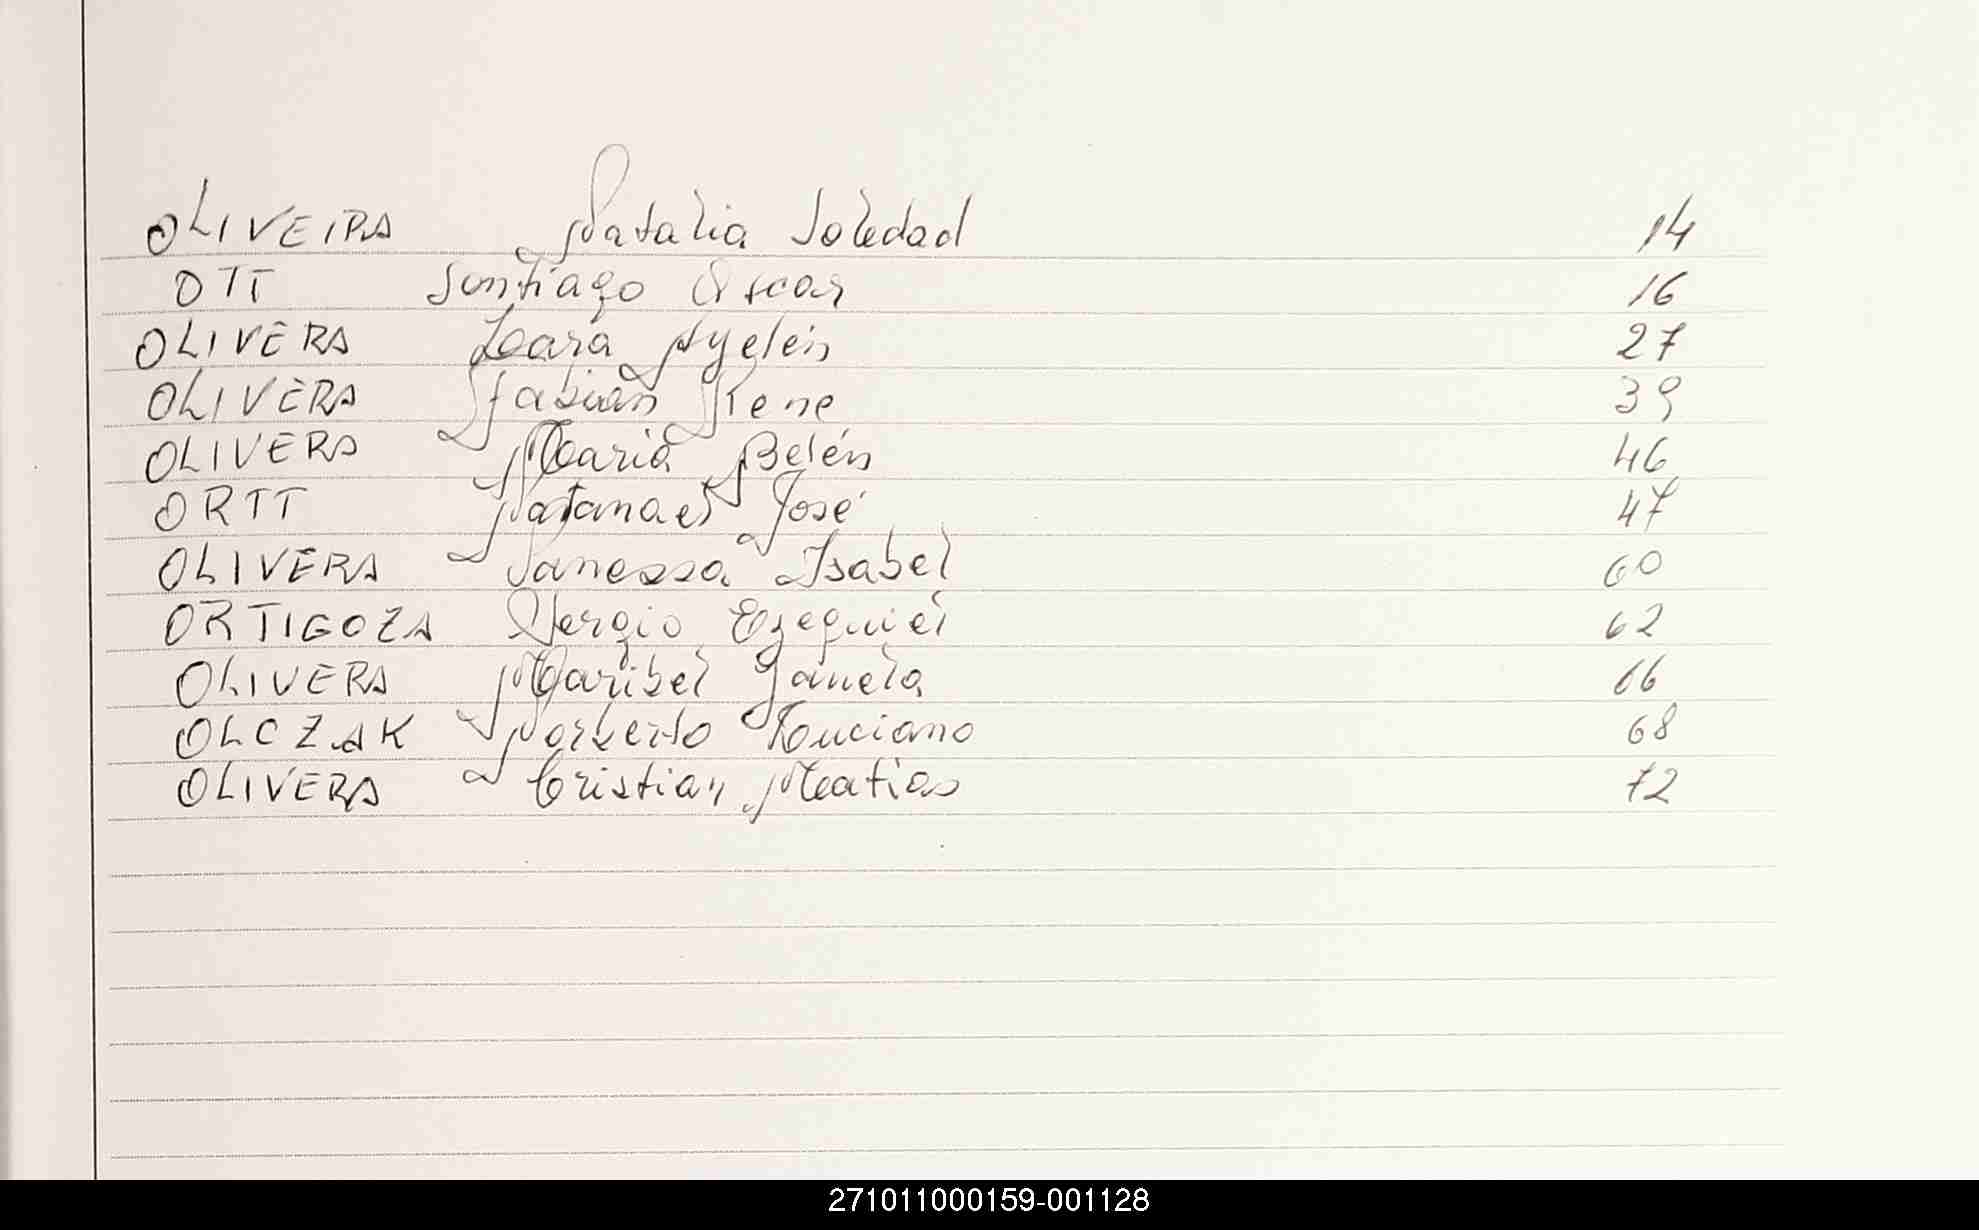 OLIVEIRA Natalia Soledad 14
OTT Santiago Oscar 16
OLIVERA Zara Ayelén 27
OLIVERA Fabián Rene 39
OLIVERA María Belén 46
ORTT Natanael José 47
OLIVERA Vanessa Isabel 60
ORTIGOZA Sergio Ezequiel 62
OLIVERA Maribel Yanela 66
OLCZAK Norberto Luciano 68
OLIVERA Cristian Matias 72
271011000159-001128